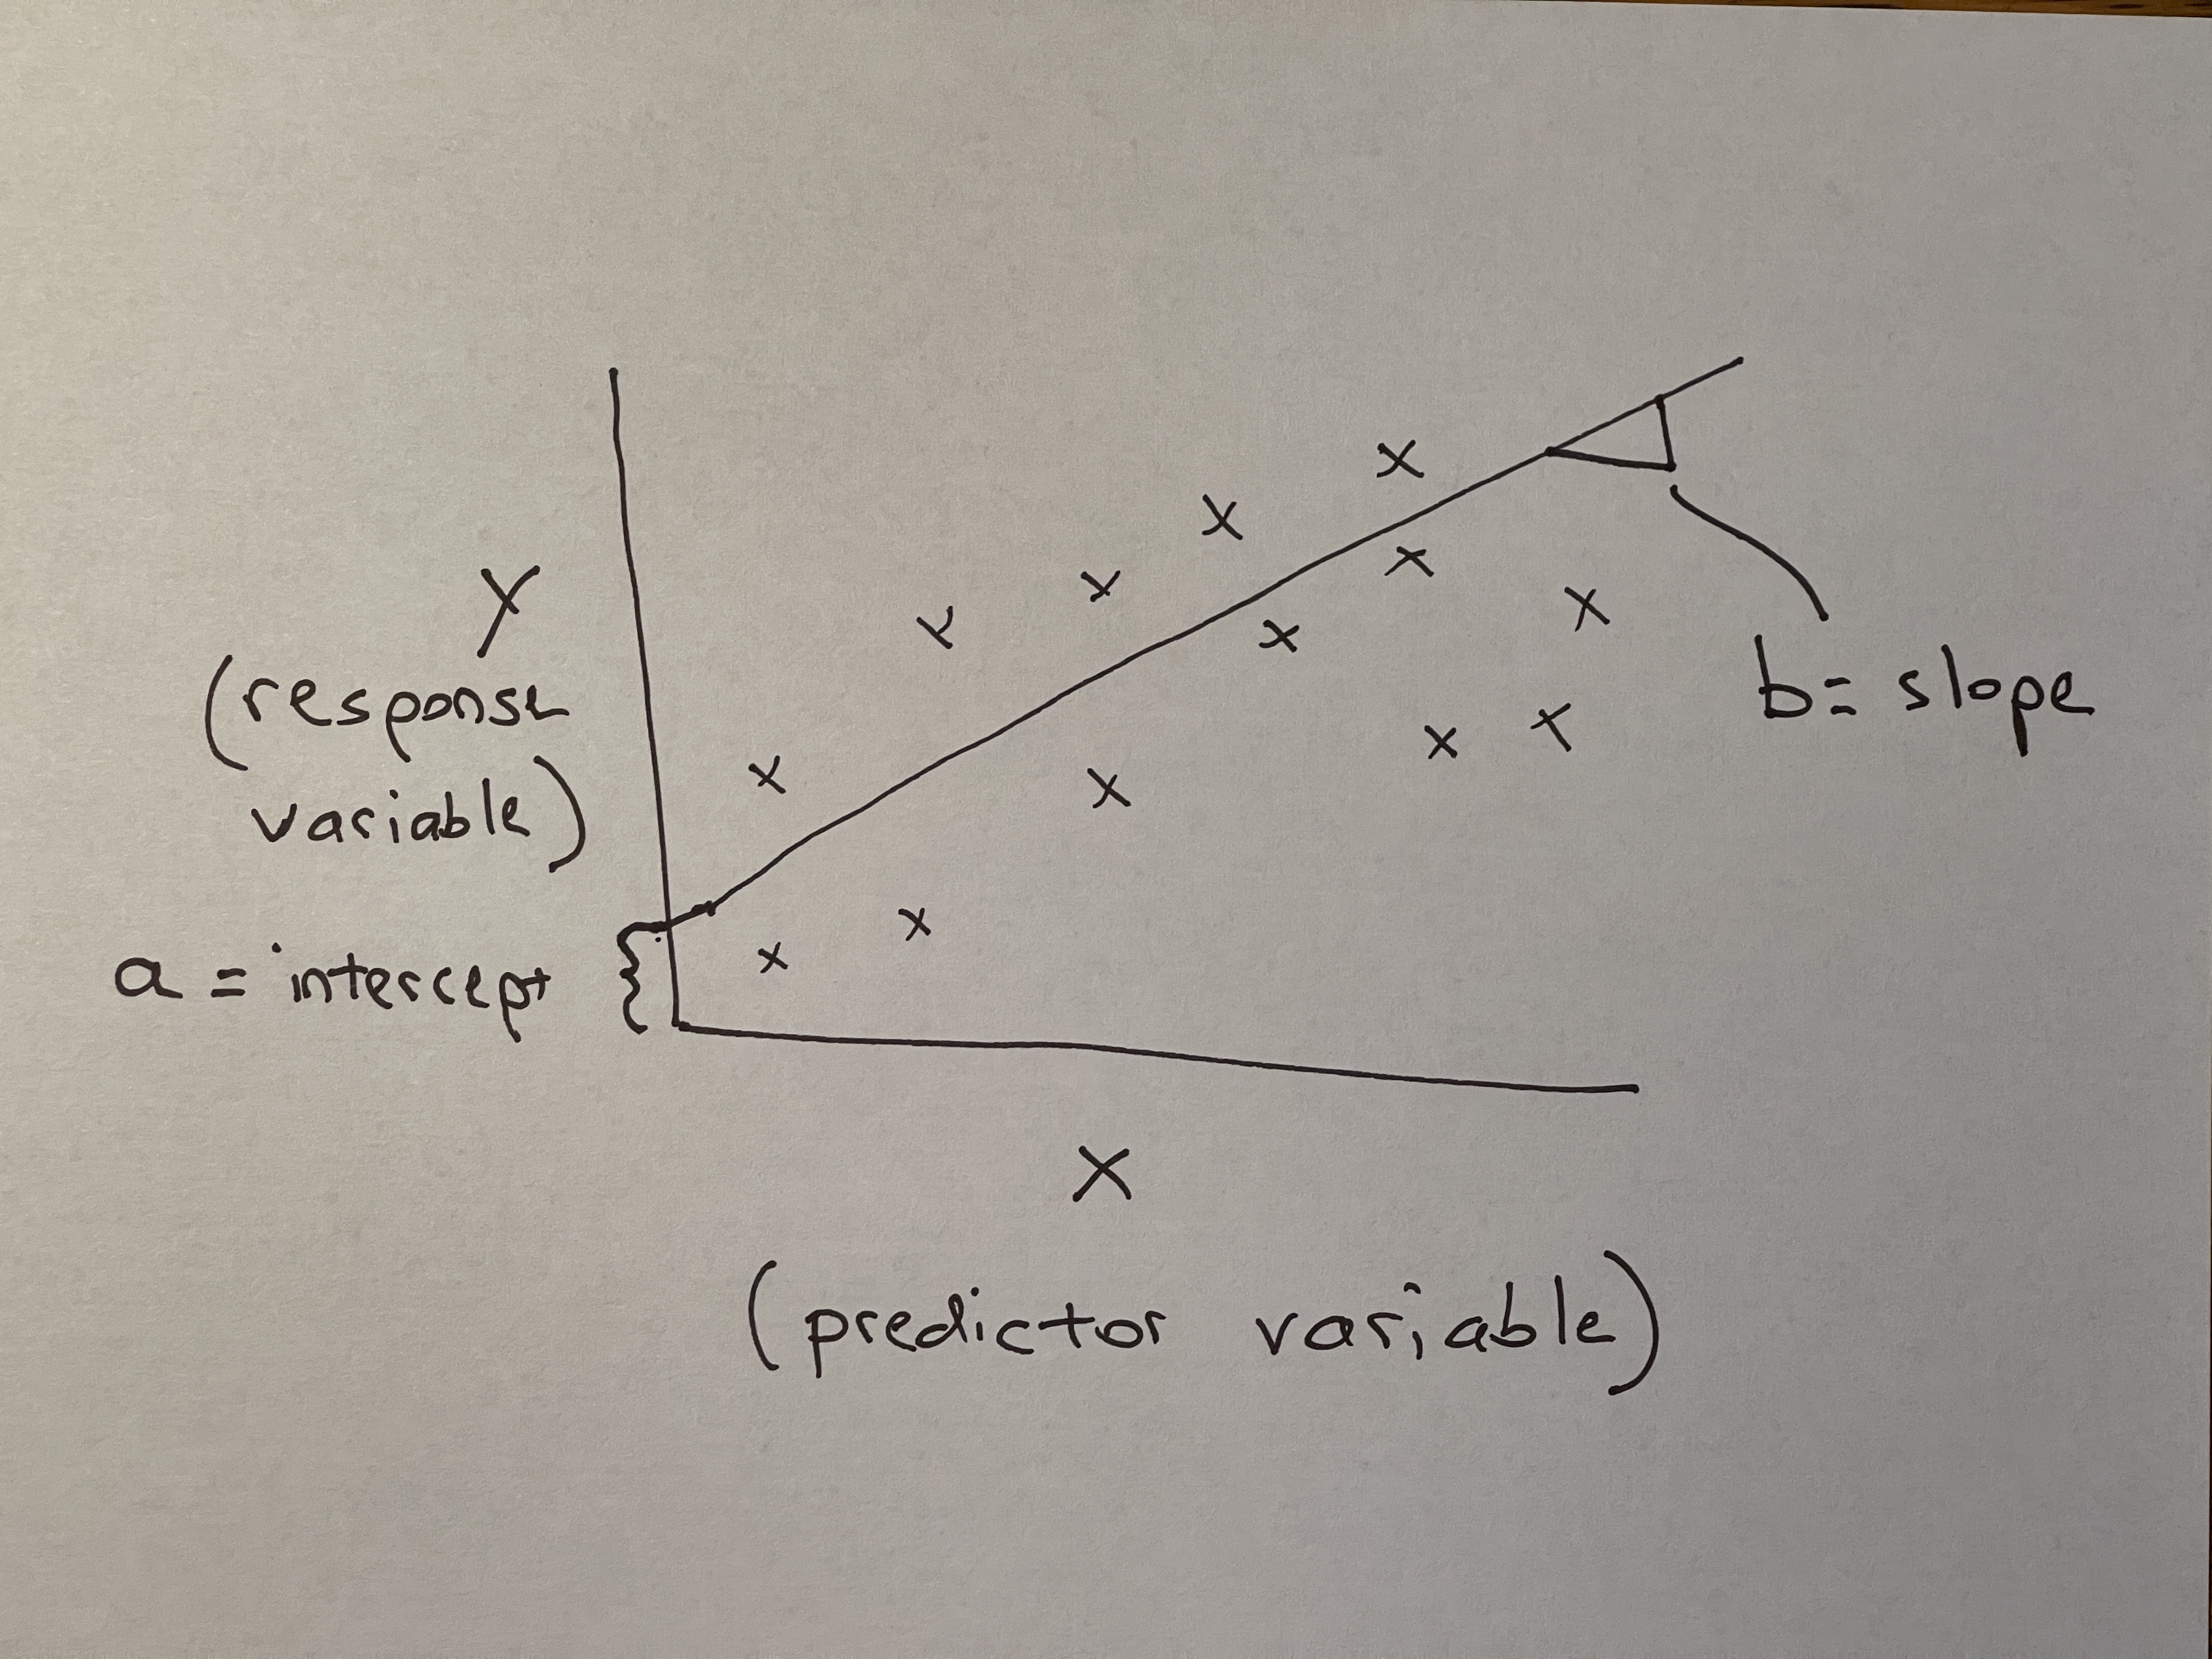 Y
(response
variable)
a = intercept
b = slope
X
(predictor variable)